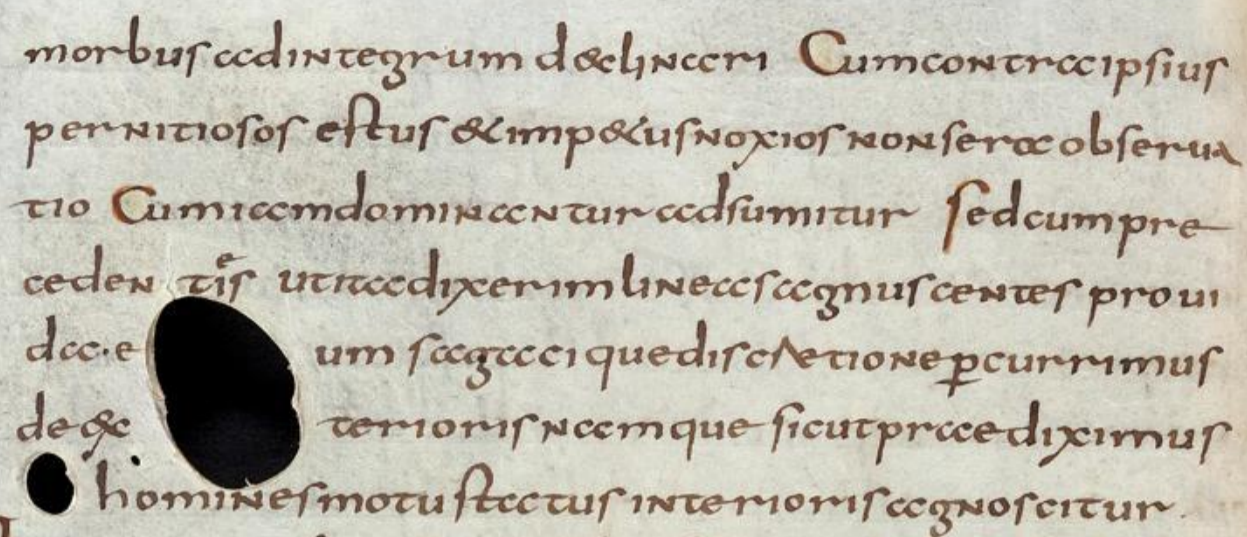 morbus adintegrum declinari Cumcontraipsius
pernitiosos estus &imp&usnoxios nonsera observa
tio Cumiamdominantur adsumitur sedcumpre
ceden tis utitadixerim lineas agnuscentes provi
da·e um sagaci quediscretione ꝑcurrimus
de &e terioris namque sicutpraediximus
homines motu status interioris agnoscitur